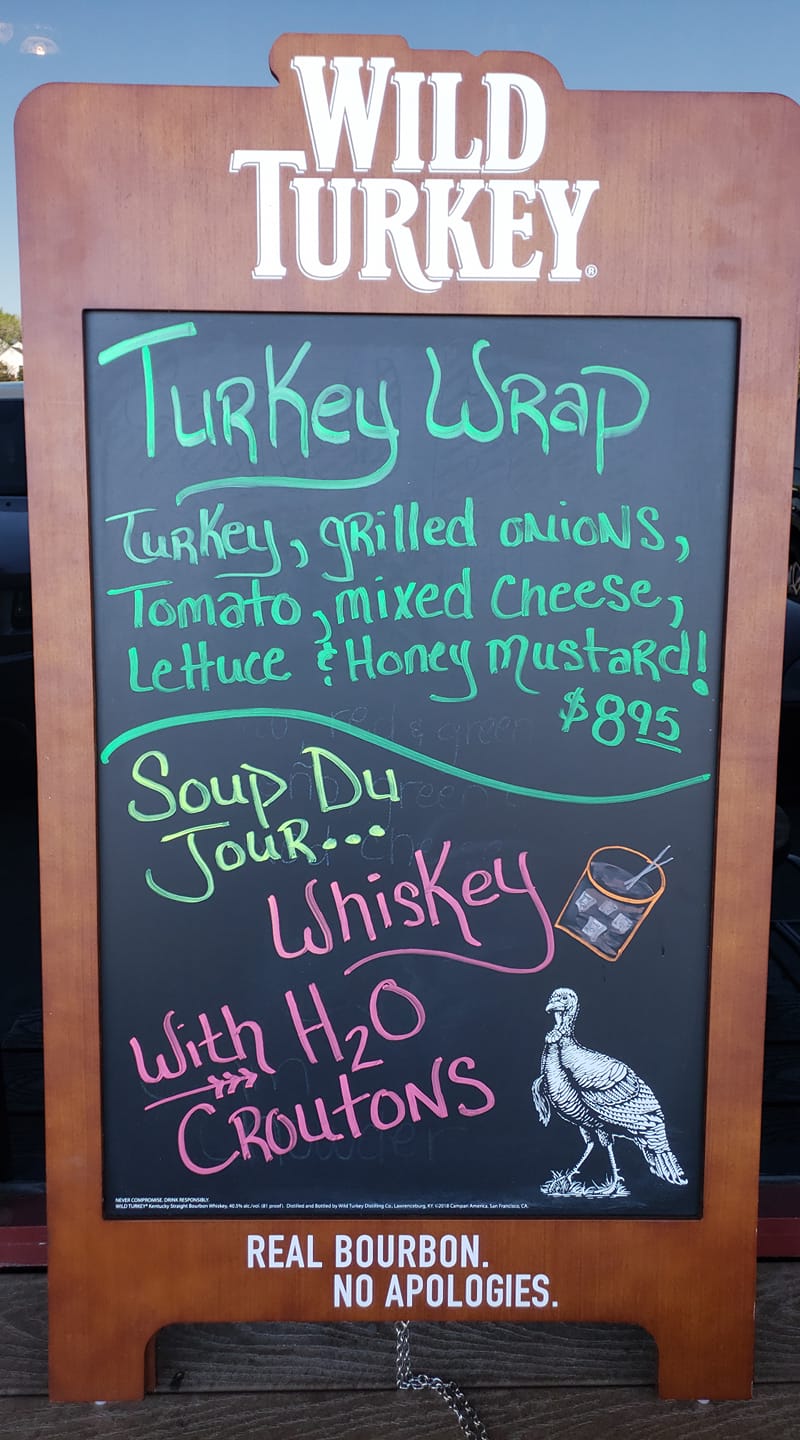 WILD
TURKEY®
Turkey Wrap
Turkey, grilled onions,
Tomato, mixed cheese,
Lettuce & Honey Mustard!
$8.95
Soup Du
Jour...
Whiskey
With H₂O
Croutons
NEVER COMPROMISE. DRINK RESPONSIBLY.
WILD TURKEY® Kentucky Straight Bourbon Whiskey, 40.5% alc./vol. (81 proof). Distilled and Bottled by Wild Turkey Distilling Co., Lawrenceburg, KY. ©2018 Campari America, San Francisco, CA.
REAL BOURBON.
NO APOLOGIES.